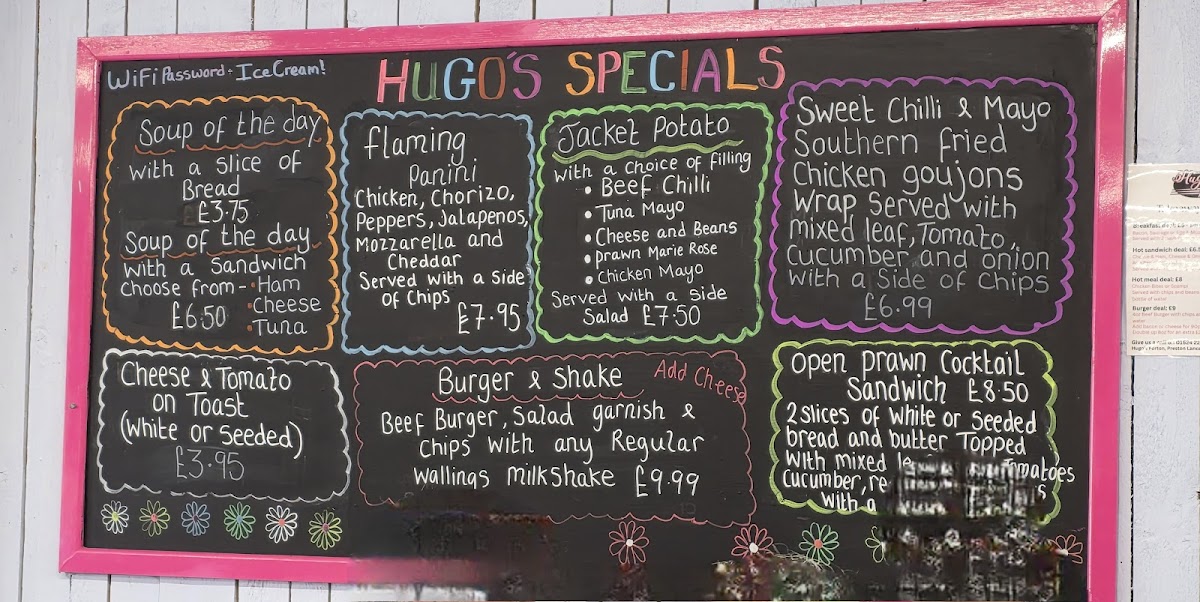 WiFi Password - IceCream!
HUGO'S SPECIALS
Soup of the day
with a slice of
Bread
£3.75
Soup of the day
with a sandwich
choose from - • Ham
• Cheese
£6.50 • Tuna
flaming
Panini
Chicken, Chorizo,
Peppers, Jalapenos,
Mozzarella and
Cheddar
Served with a side
of Chips
£7.95
Jacket Potato
with a choice of filling
• Beef Chilli
• Tuna Mayo
• Cheese and Beans
• prawn Marie Rose
• Chicken Mayo
Served with a side
Salad £7.50
Sweet Chilli & Mayo
Southern fried
Chicken goujons
Wrap Served with
mixed leaf, Tomato,
cucumber and onion
with a side of Chips
£6.99
Cheese & Tomato
on Toast
(white or seeded)
£3.95
Burger & Shake Add Cheese
Beef Burger, Salad garnish &
Chips with any Regular
wallings milkshake £9.99
open prawn Cocktail
Sandwich £8.50
2 slices of white or seeded
bread and butter Topped
with mixed
cucumber,
with a
Hot sandwich deal:
Hot meal deal: £8
Burger deal: £9